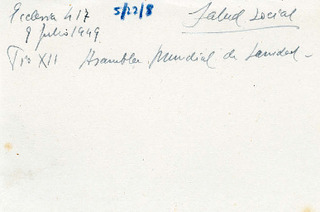 Ecclesia 417 5/22/8 Salud Social
9 Julio 1949
Pio XII Asamblea Mundial de Sanidad -